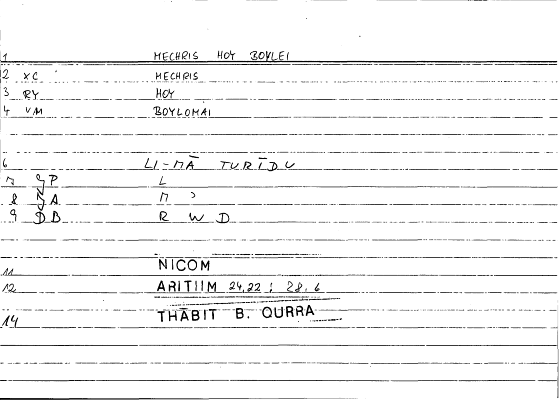 1 MECHRIS HOY BOYLEI
2 XC MECHRIS
3 RY HOY
4 VM BOYLOMAI
6 LI-MĀ TURĪDU
7 GP L
8 NA M
9 DB R W D
11 NICOM
12 ARITIIM 24,22 ; 28,6
14 THĀBIT B. QURRA